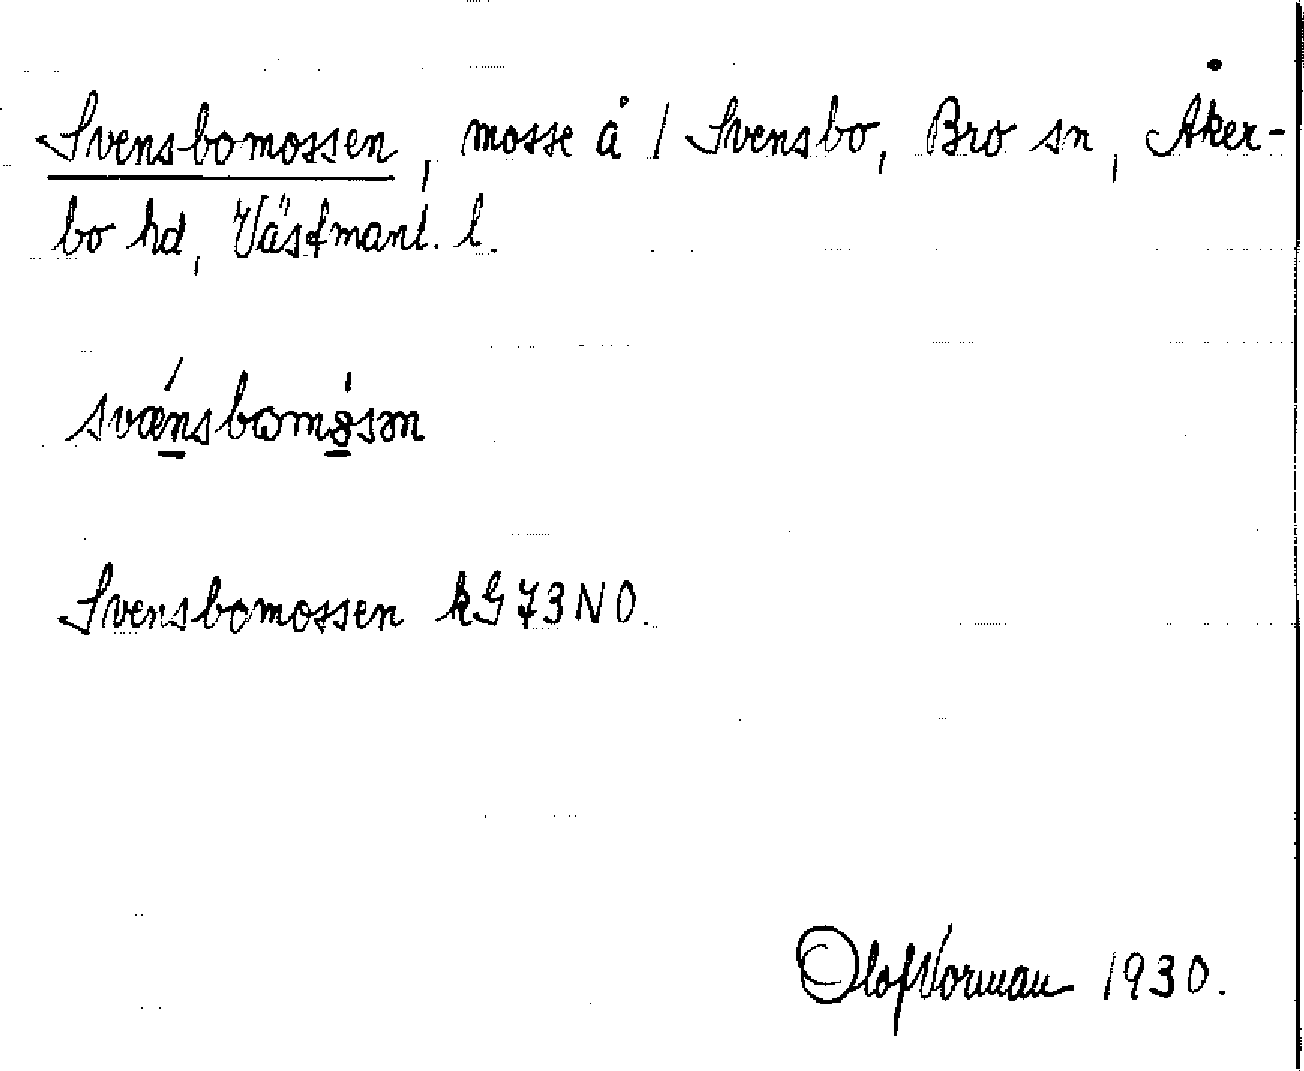 Svensbomossen, mosse å / Svensbo, Bro sn, Åker-
bo hd, Västmanl. l.
svænsbomåsən
Svensbomossen kG73NO.
Olof Norman 1930.